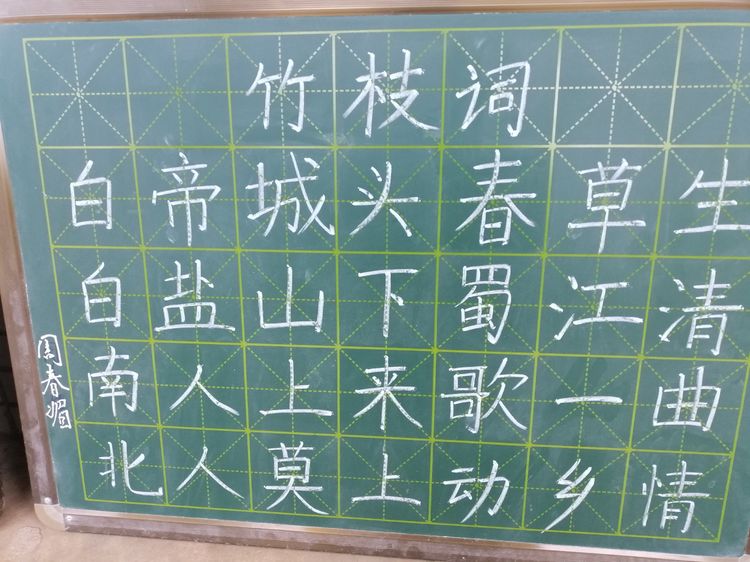 竹枝词
白帝城头春草生
白盐山下蜀江清
南人上来歌一曲
北人莫上动乡情
周春媚